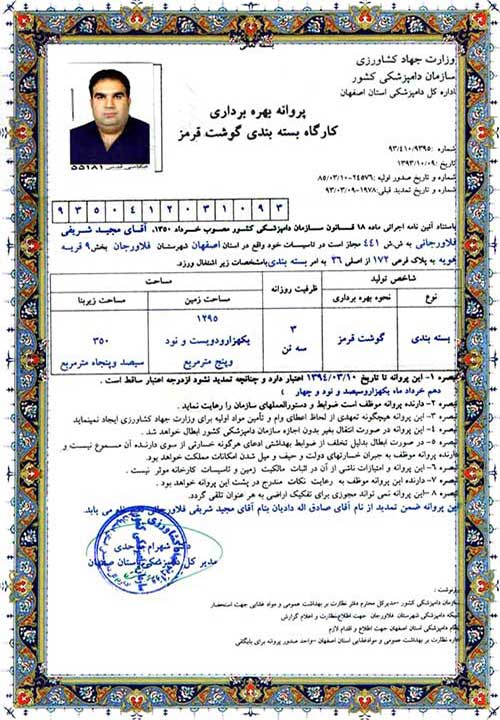 بسمه تعالی
وزارت جهاد کشاورزی
سازمان دامپزشکی کشور
اداره کل دامپزشکی استان اصفهان
پروانه بهره برداری
کارگاه بسته بندی گوشت قرمز
شماره: ۹۳/۴۱۰/۹۳۹۵
تاریخ: ۱۳۹۳/۱۰/۰۹
شماره و تاریخ صدور اولیه: ۲۴۵۷۶-۸۵/۰۳/۱۰
شماره و تاریخ تمدید قبلی: ۱۹۷۸-۹۳/۰۳/۰۹
۵۵۱۸۱
۹ ۳ ۵ ۰ ۴ ۱ ۲ ۰ ۳ ۱ ۰ ۹ ۳
باستناد آئین نامه اجرائی ماده ۱۸ قانون سازمان دامپزشکی کشور مصوب خرداد ۱۳۵۰، آقای مجید شریفی
فلاورجانی به ش.ش ۴۴۱ مجاز است در تاسیسات خود واقع در استان اصفهان شهرستان فلاورجان بخش ۹ قریه
خویه به پلاک فرعی ۱۷۲ از اصلی ۳۶ به امر بسته بندی بامشخصات زیر اشتغال ورزد.
شاخص تولید ظرفیت روزانه مساحت
نوع نحوه بهره برداری مساحت زمین مساحت زیربنا
بسته بندی گوشت قرمز ۳ سه تن ۱۲۹۵ یکهزارودویست و نود وپنج مترمربع ۳۵۰ سیصد وپنجاه مترمربع
تبصره ۱- این پروانه تا تاریخ ۱۳۹۴/۰۳/۱۰ اعتبار دارد و چنانچه تمدید نشود ازدرجه اعتبار ساقط است.
دهم خرداد ماه یکهزاروسیصد و نود و چهار
تبصره ۲- دارنده پروانه موظف است ضوابط و دستورالعملهای سازمان را رعایت نماید.
تبصره ۳- این پروانه هیچگونه تعهدی از لحاظ اعطای وام و تأمین مواد اولیه برای وزارت جهاد کشاورزی ایجاد نمینماید
تبصره ۴- این پروانه در صورت انتقال بغیر بدون اجازه سازمان دامپزشکی کشور ابطال خواهد شد.
تبصره ۵- در صورت ابطال بدلیل تخلف از ضوابط بهداشتی ادعای هرگونه خسارتی از سوی دارنده آن مسموع نیست و
دارنده پروانه موظف به جبران خسارتهای دولت و حیف و میل شدن امکانات مملکت خواهد بود.
تبصره ۶- این پروانه و امتیازات ناشی از آن در اثبات مالکیت زمین و تاسیسات کارخانه موثر نیست.
تبصره ۷- دارنده این پروانه موظف به رعایت نکات مندرج در پشت این پروانه خواهد بود.
تبصره ۸- این پروانه نمی تواند مجوزی برای تفکیک اراضی به هر عنوان تلقی گردد.
این پروانه ضمن تمدید از نام آقای صادق اله دادیان بنام آقای مجید شریفی فلاورجانی می باید.
شهرام احدی
مدیر کل دامپزشکی استان اصفهان
رونوشت:
سازمان دامپزشکی کشور -مدیرکل محترم دفتر نظارت بر بهداشت عمومی و مواد غذایی جهت استحضار
شبکه دامپزشکی شهرستان فلاورجان جهت اطلاع،نظارت و اعلام گزارش
نظام دامپزشکی استان اصفهان جهت اطلاع و اقدام لازم
اداره نظارت بر بهداشت عمومی و موادغذایی استان اصفهان -واحد صدور پروانه برای بایگانی